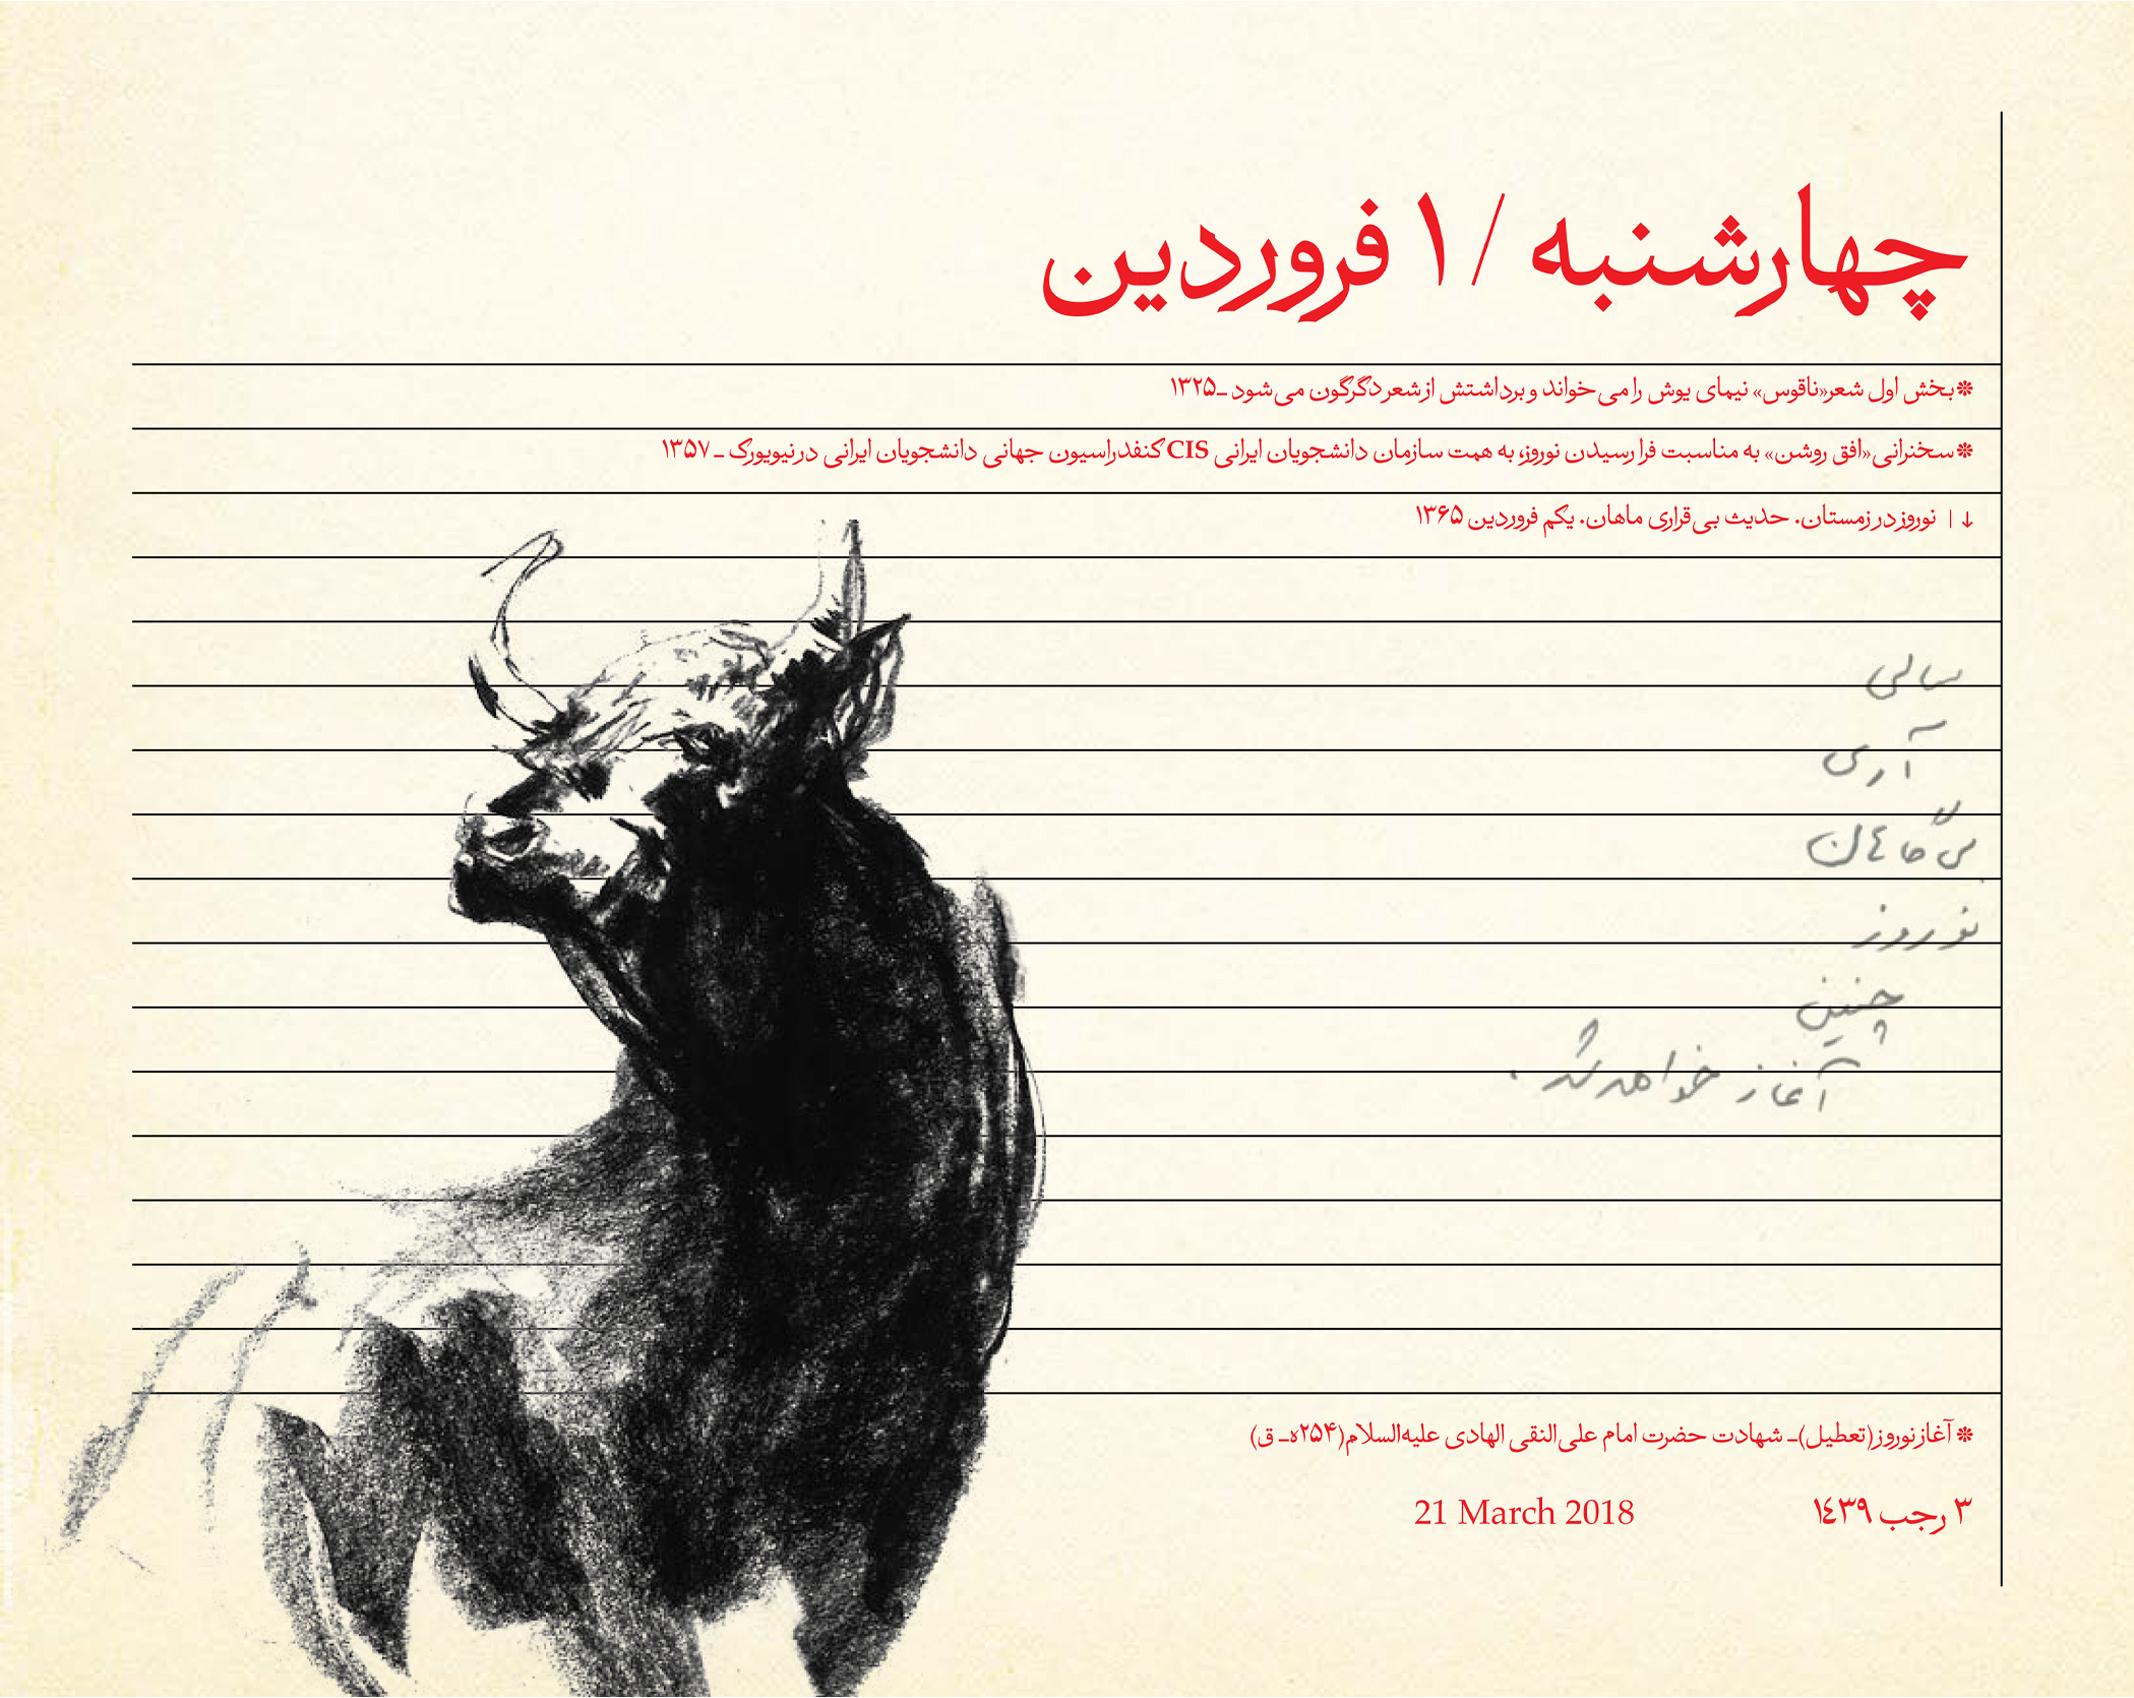 چهارشنبه / ۱ فروردین
* بخش اول شعر «ناقوس» نیمای یوش را می‌خواند و برداشتش از شعر دگرگون می‌شود ـ ۱۳۲۵
* سخنرانی «افق روشن» به مناسبت فرا رسیدن نوروز، به همت سازمان دانشجویان ایرانی CIS کنفدراسیون جهانی دانشجویان ایرانی در نیویورک ـ ۱۳۵۷
↓ | نوروز در زمستان. حدیث بی‌قراری ماهان. یکم فروردین ۱۳۶۵
سالی
آری
بی‌گاهان
نوروز
چنین
آغاز خواهد شد.
* آغاز نوروز (تعطیل) ـ شهادت حضرت امام علی‌النقی الهادی علیه‌السلام (۲۵۴ه‍ ـ ق)
۳ رجب ۱۴۳۹ 21 March 2018